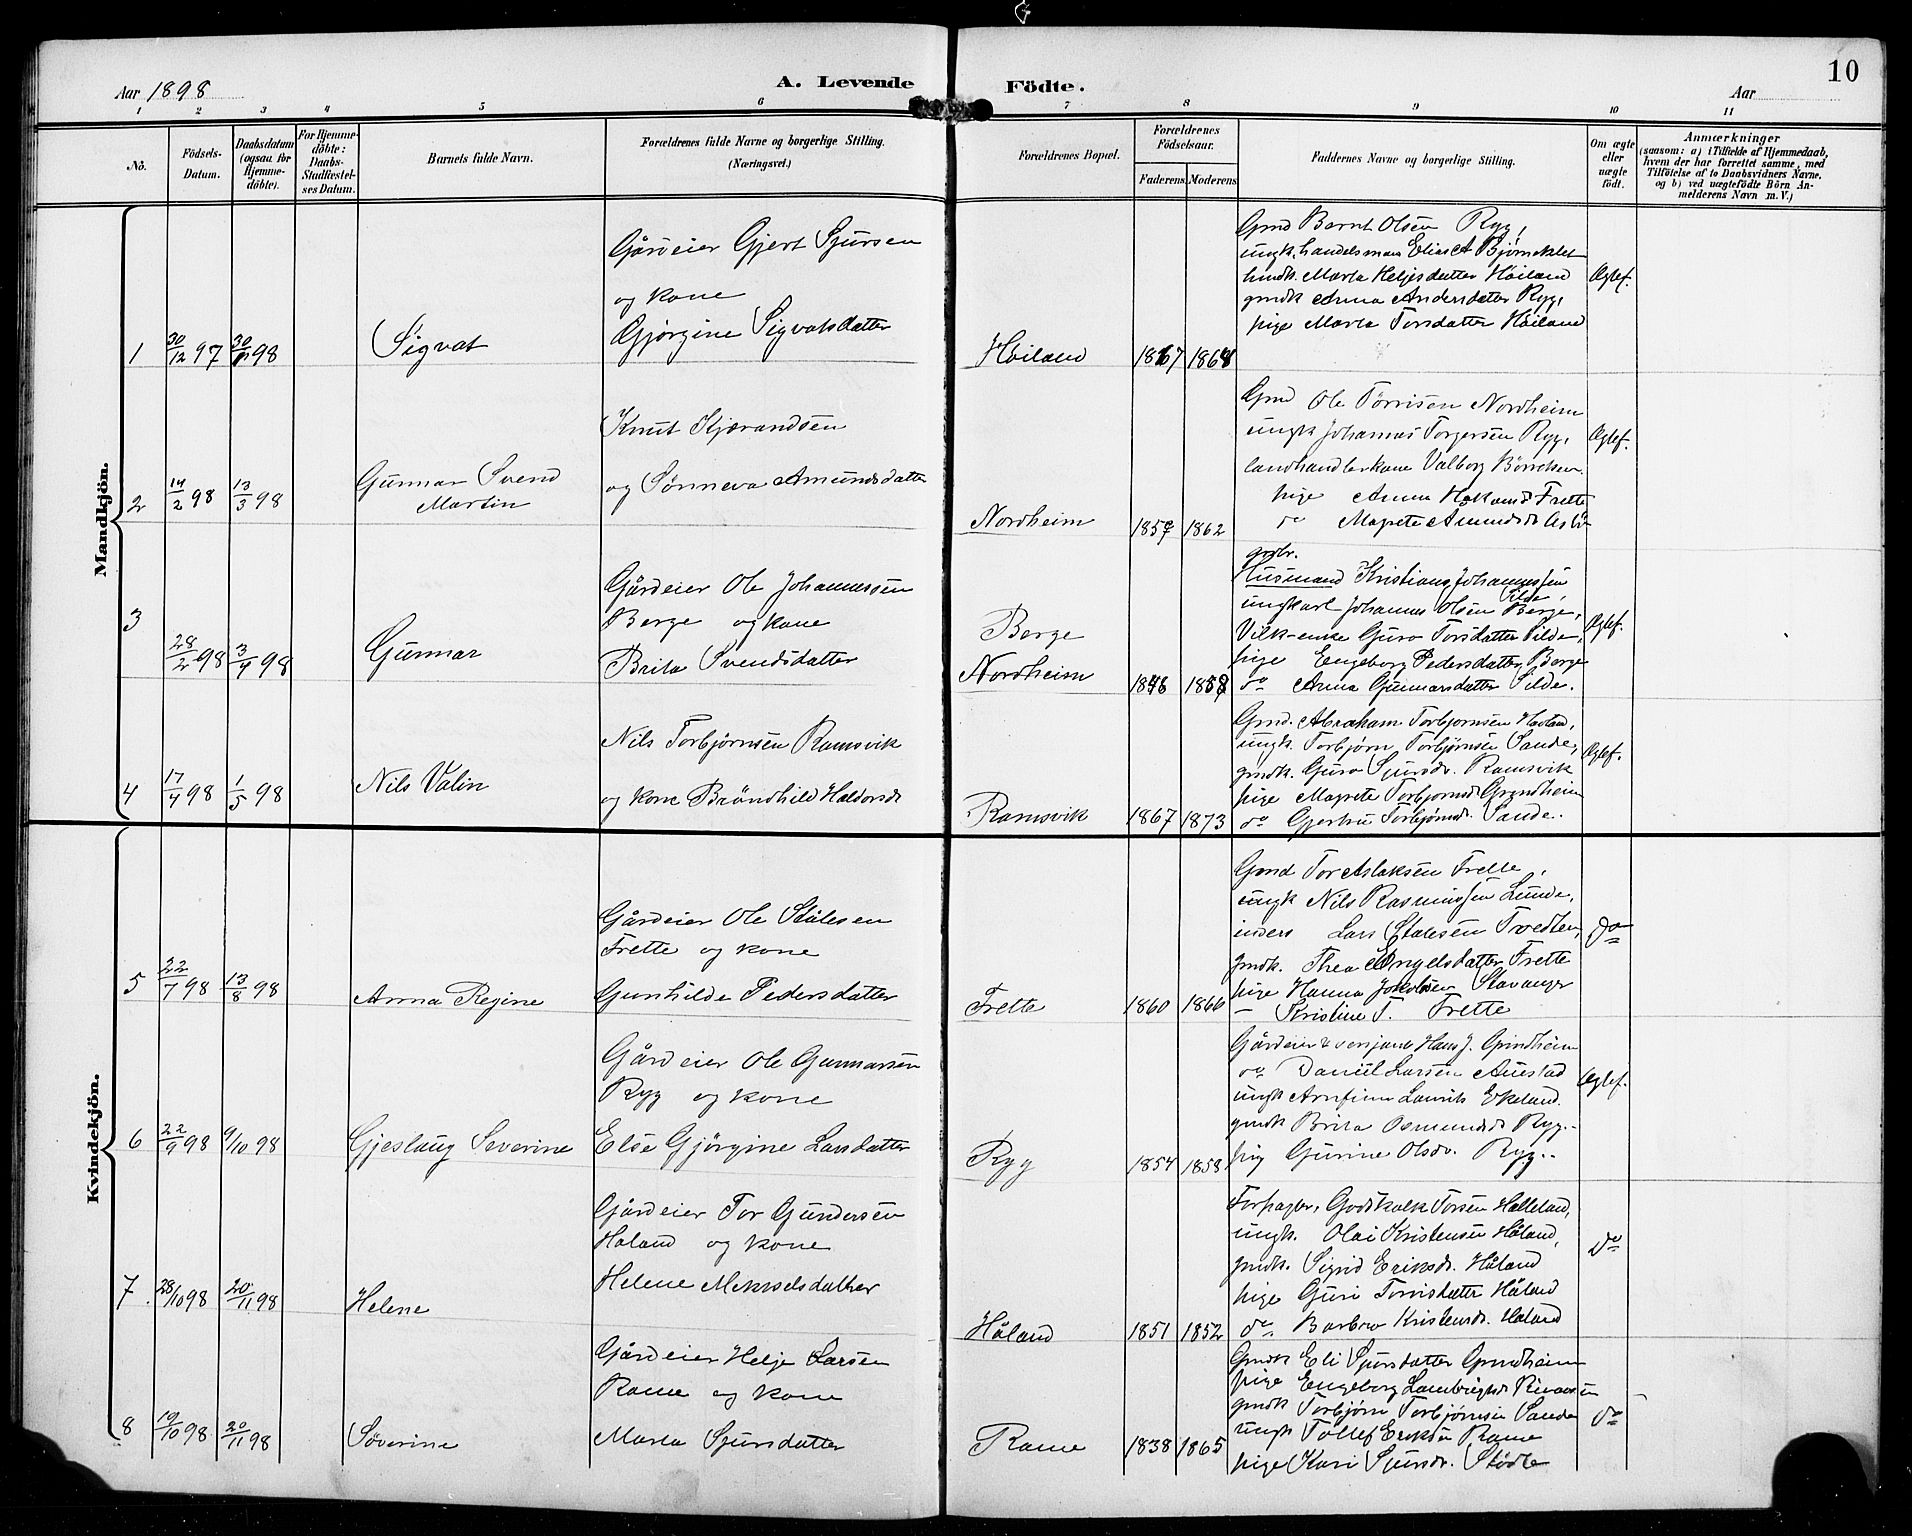 10
Aar 1898
A. Levende
Födte.
Aar
1 2 3 4 5 6 7 8 9 10 11
No.
Födsels-Datum.
Daabsdatum (ogsaa for Hjemmedöbte).
For Hjemmedöbte: Daabs-Stadfæstelses Datum.
Barnets fulde Navn.
Forældrenes fulde Navne og borgerlige Stilling. (Næringsvei.)
Forældrenes Bopæl.
Forældrenes Födselsaar.
Faderens. Moderens.
Faddernes Navne og borgerlige Stilling.
Om ægte eller uægte födt.
Anmærkninger
(saasom: a) i Tilfælde af Hjemmedaab, hvem der har forrettet samme, med Tilföielse af to Daabsvidners Navne, og b) ved uægtefödte Börn Anmelderens Navn m. V.)
Mandkjön.
1 30/12 97 98 Sigvat
Gårdeier Gjert Sjursen
og kone
Gjørgine Sigvatsdatter
Høiland 1867 1868
Gmd Bernt Olsen Ryg,
ungk. handelsman Elias A Bjørneklet
hmdk. Marta Heljesdatter Høiland
gmdk Anna Andersdatter Ryg,
pige Marta Torsdatter Høiland
Ægtef.
2 14/2 98 13/3 98 Gunnar Svend
Martin
Knut Kjærandsen
og Sønneva Amundsdatter
Nordheim 1859 1862
Gmd Ole Tørrisen Nordheim
ungk Johannes Torgersen Ryg,
landhandlerkone Valborg Børretsen
pige Anna Håkonsd Frette
do Magrete Amundsd.
Ægtef.
3 28/2 98 3/4 98 Gunnar
Gårdeier Ole Johannessen
Berge og kone
Brita Svendsdatter
Berge
Nordheim 1846 1858
gårdbr.
Husmand Kristians Johannessen
Tilde,
ungkarl Johannes Olsen Berge,
Vilk-enke Guro Torsdatter Silde,
pige Engeborg Pedersdatter Berge
do Anna Gunnarsdatter Silde.
Ægtef.
4 17/4 98 1/5 98 Nils Valin
Nils Torbjørnsen Ramsvik
og kone Brøndhild Haldorsd
Ramsvik 1867 1873
Gmd. Abraham Torbjørnsen
ungk. Torbjørn Torbjørnsen Sande,
gmdk. Guro Sjursd. Ramsvik
pige Magrete Torbjørnsd Grindheim
do Gjertru Torbjørnsd. Sande.
Ægtef.
Kvindekjön.
5 22/7 98 13/8 98 Anna Regine
Gårdeier Ole Stålesen
Frette og kone
Gunhilde Pedersdatter
Frette 1860 1866
Gmd Tor Aslaksen Frette,
ungk Nils Rasmussen Lunde,
inders Lars Stålesen Tvedten,
gmdk. Thea Engelsdatter Frette
pige Hanna Jakobsen Stavanger
— Kristine T. Frette
do
6 22/9 98 9/10 98 Gjeslaug Severine
Gårdeier Ole Gunnarsen
Ryg og kone
Else Gjørgine Larsdatter
Ryg 1854 1858
Gårdeier & Hans J. Grindheim
do Daniel Larsen Auestad
ungk Arnfinn Laurits Ekeland.
gmdk Brita Osmundsd Ryg..
pig Gurine Olsdr. Ryg..
Ægtef.
7 28/10 98 20/11 98 Helene
Gårdeier Tor Gundersen
Håland og kone
Helene Mekkelsdatter
Håland 1851 1852
Forpagter, Godtskalk Torsen Halleland,
ungk. Olai Kristensen Håland,
gmdk. Sigrid Eriksd. Håland
pige Guri Torrisdatter Håland
do Barbro Kristensd. Håland
do
8 19/10 98 20/11 98 Søverine
Gårdeier Helje Larsen
Rame og kone
Marta Sjursdatter
Rame 1838 1865
Gmdk Eli Sjursdatter Grindheim
pige Engeborg Lambrigtsd
gmdk Torbjørn Torbjørnsen Sande
ungk Tollef Eriksen Rame
pige Kari Sjursdr. Stødle
do